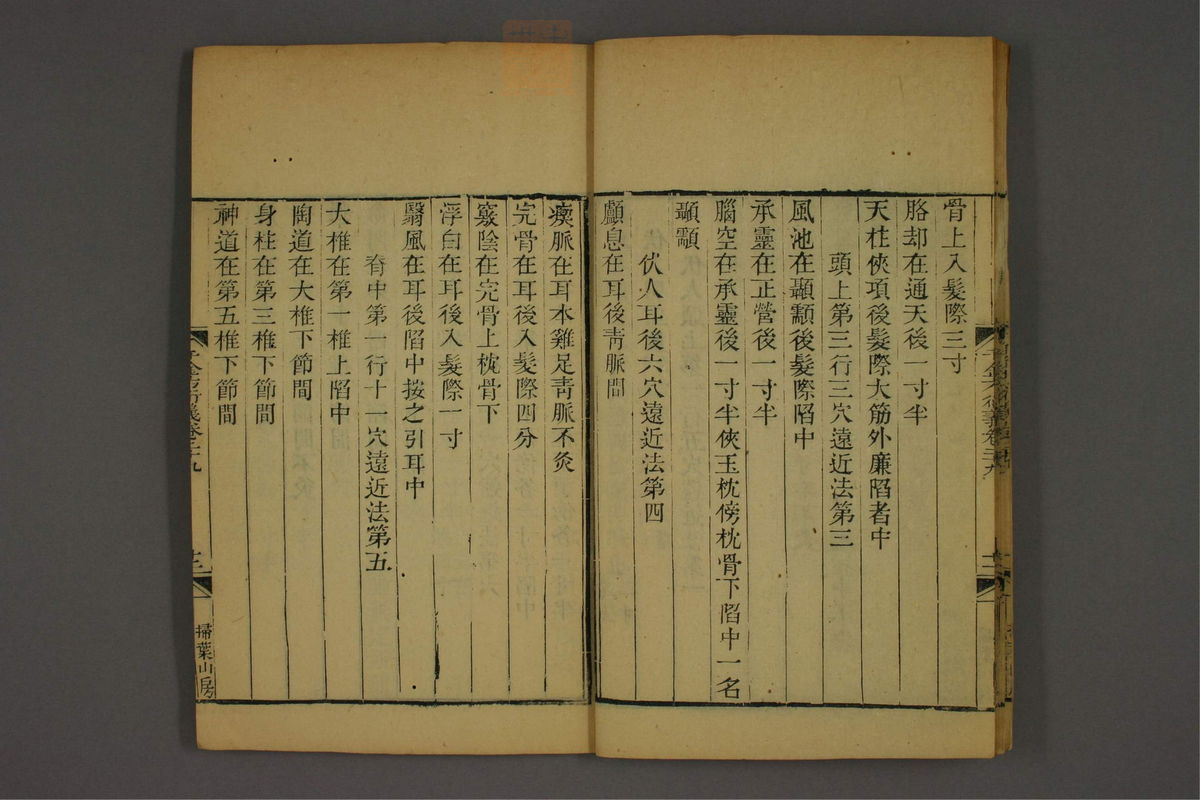 骨上入髮際三寸
胳却在通天後一寸半
天柱俠項後髮際大筋外廉陷者中
頭上第三行三穴遠近法第三
風池在顳顬後髮際陷中
承靈在正營後一寸半
腦空在承靈後一寸半俠玉枕傍枕骨下陷中一名
顳顬
伏人耳後六穴遠近法第四
顱息在耳後靑脈間
瘈脈在耳本雞足靑脈不灸
完骨在耳後入髮際四分
竅陰在完骨上枕骨下
浮白在耳後入髮際一寸
翳風在耳後陷中按之引耳中
脊中第一行十一穴遠近法第五
大椎在第一椎上陷中
陶道在大椎下節間
身柱在第三椎下節間
神道在第五椎下節間
千金方衍義卷二十九
掃葉山房